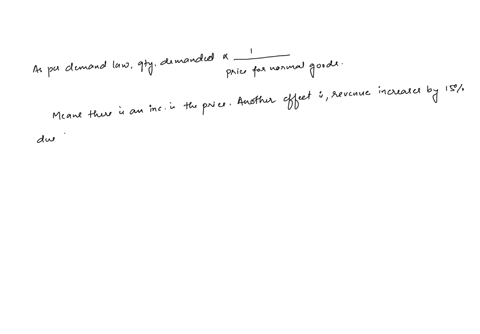 As per demand law, qty. demanded ∝ 1 / price for normal goods.
Means there is an inc. in the price. Another effect is, revenue increases by 15%
due